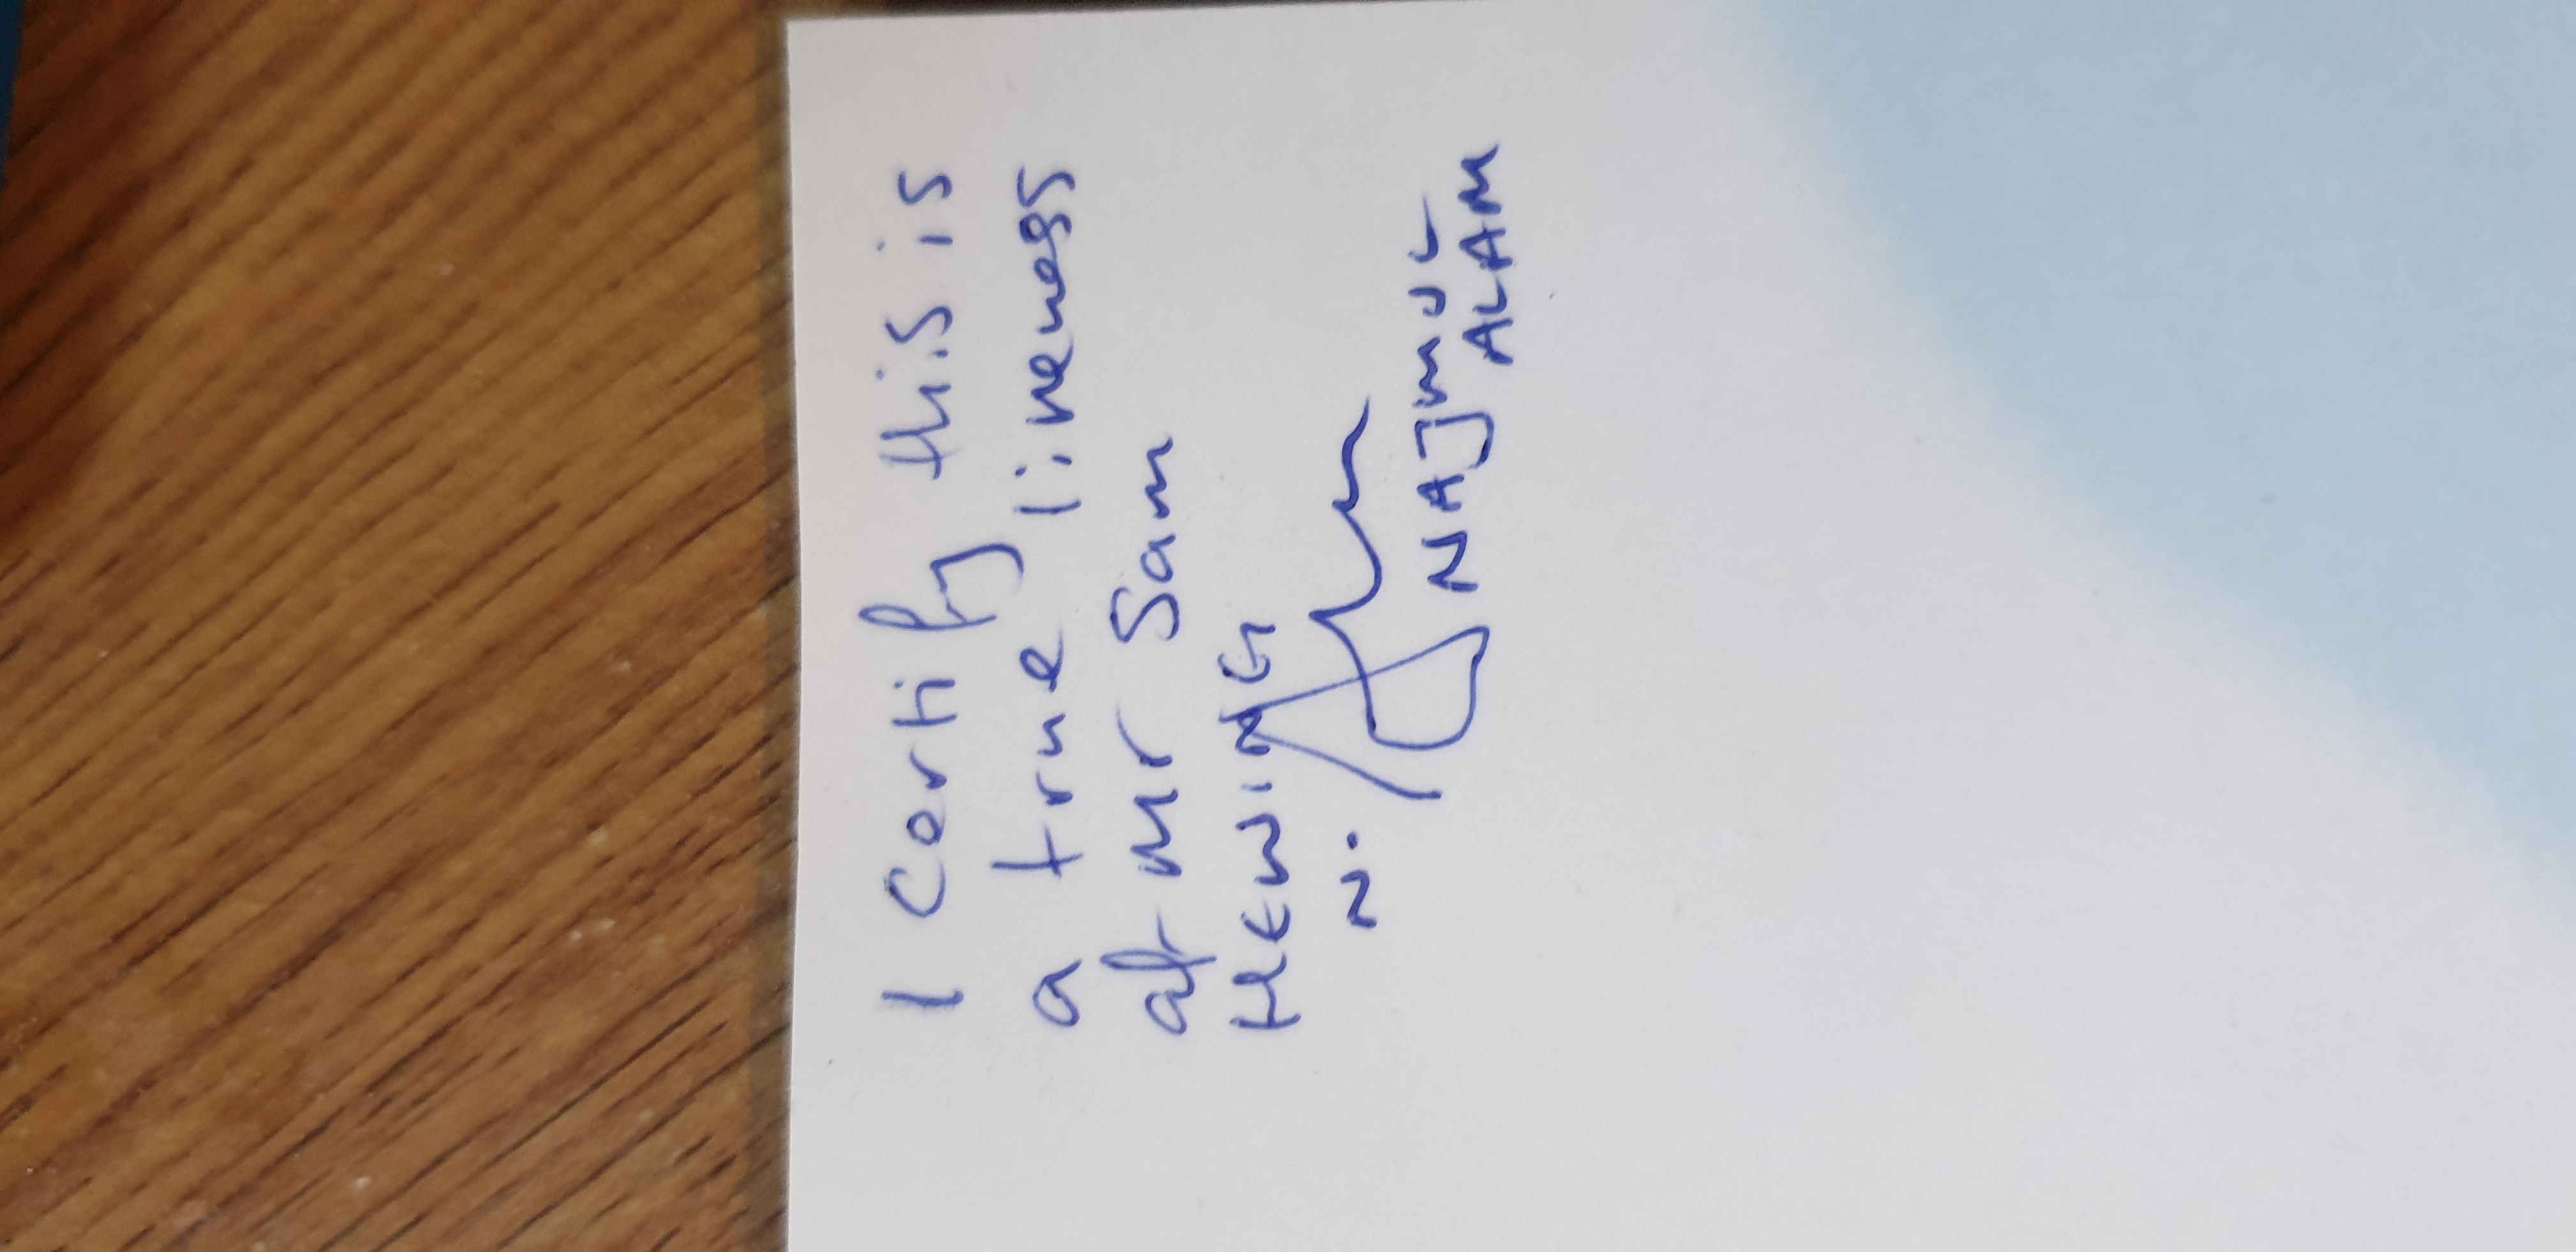 I certify this is
a true likeness
of Mr Sam
HEWING
N.
NAJMUL
ALAM